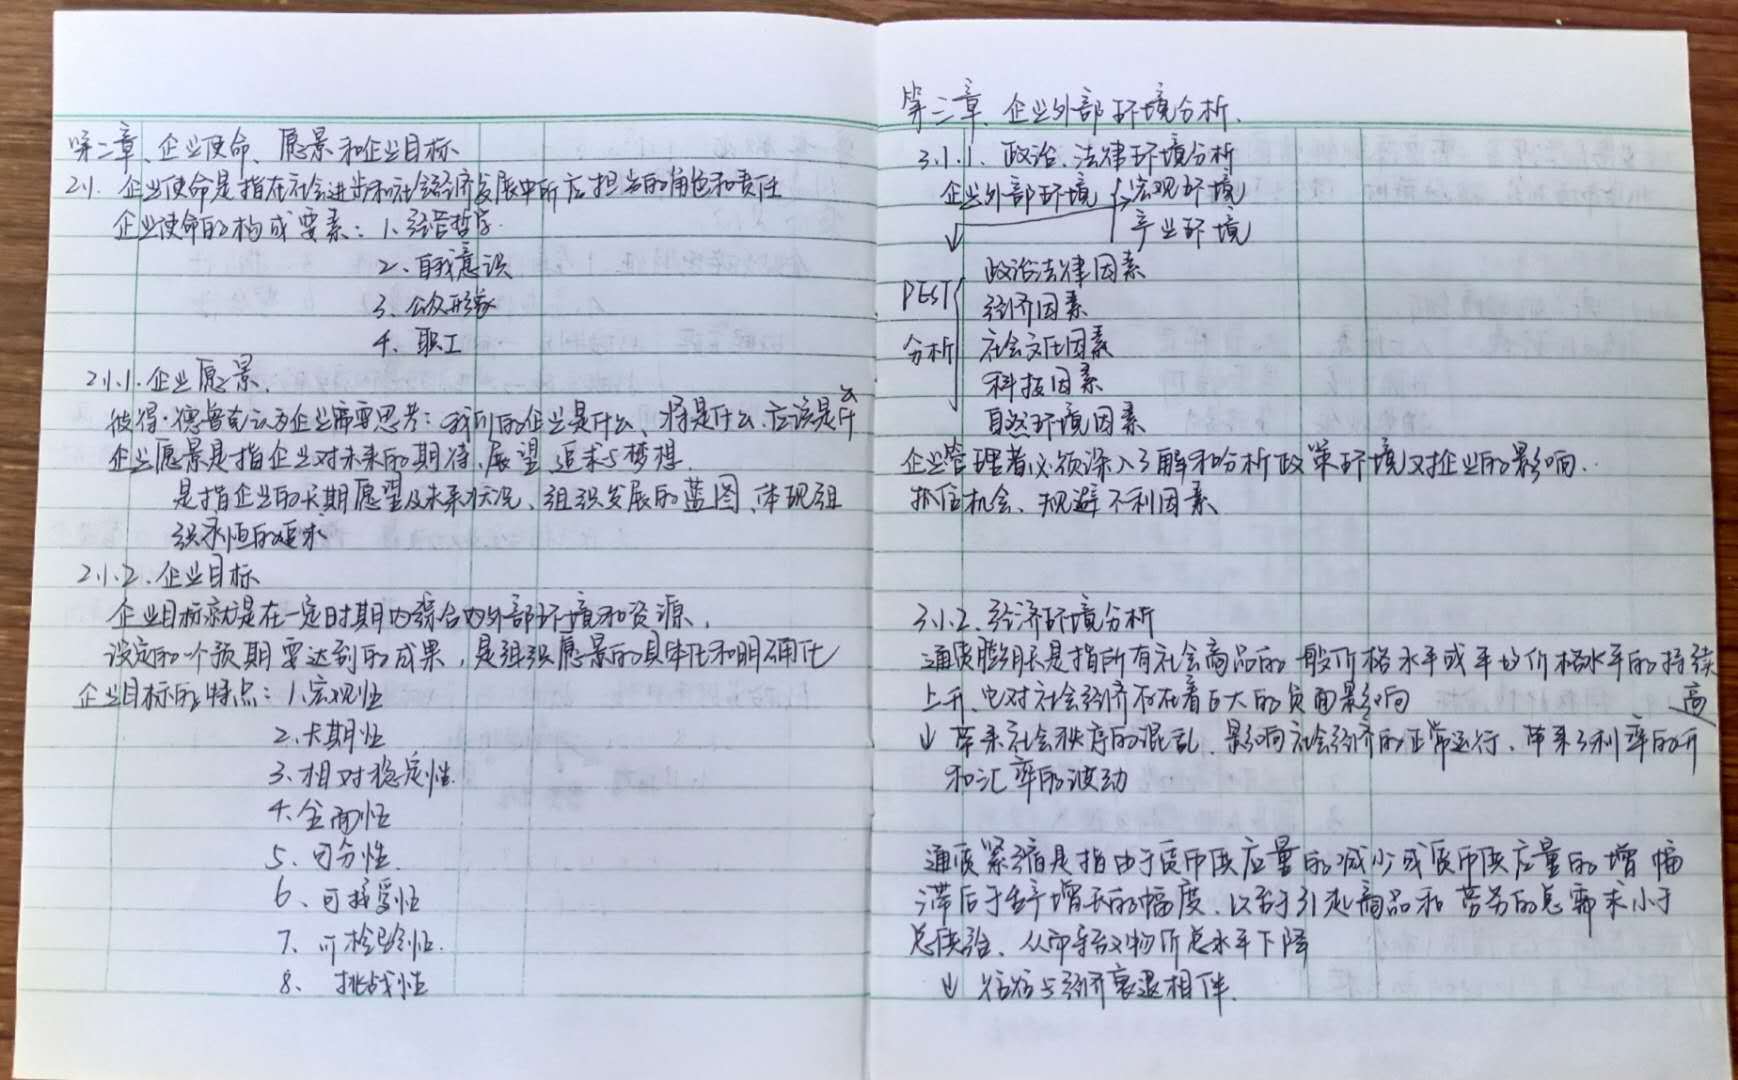 第二章、企业使命、愿景和企业目标
2.1. 企业使命是指在社会进步和社会经济发展中所应担当的角色和责任
企业使命的构成要素：1、经营哲学
2、自我意识
3、公众形象
4、职工
2.1.1.企业愿景.
彼得·德鲁克认为企业需要思考：我们的企业是什么、将是什么、应该是什么
企业愿景是指企业对未来的期待、展望、追求与梦想.
是指企业的长期愿望及未来状况、组织发展的蓝图、体现组
织永恒的追求
2.1.2.企业目标
企业目标就是在一定时期内综合内外部环境和资源,
设定的一个预期要达到的成果，是组织愿景的具体化和明确化
企业目标的特点：1.宏观性
2.长期性
3.相对稳定性.
4.全面性
5、可分性.
6、可接受性
7、可检验性.
8、挑战性
第三章、企业外部环境分析.
3.1.1、政治、法律环境分析
企业外部环境 宏观环境
产业环境
政治法律因素
PEST 经济因素
分析 社会文化因素
科技因素
自然环境因素
企业管理者必须深入了解和分析政策环境对企业的影响..
抓住机会、规避不利因素
3.1.2.经济环境分析
通货膨胀是指所有社会商品的一般价格水平或平均价格水平的持续
上升、它对社会经济存在着巨大的负面影响
↓ 带来社会秩序的混乱、影响社会经济的正常运行、带来了利率的升高
和汇率的波动
通货紧缩是指由于货币供应量的减少或货币供应量的增幅
滞后于生产增长的幅度、以至于引起商品和劳务的总需求小于
总供给、从而导致物价总水平下降
↓ 往往与经济衰退相伴.